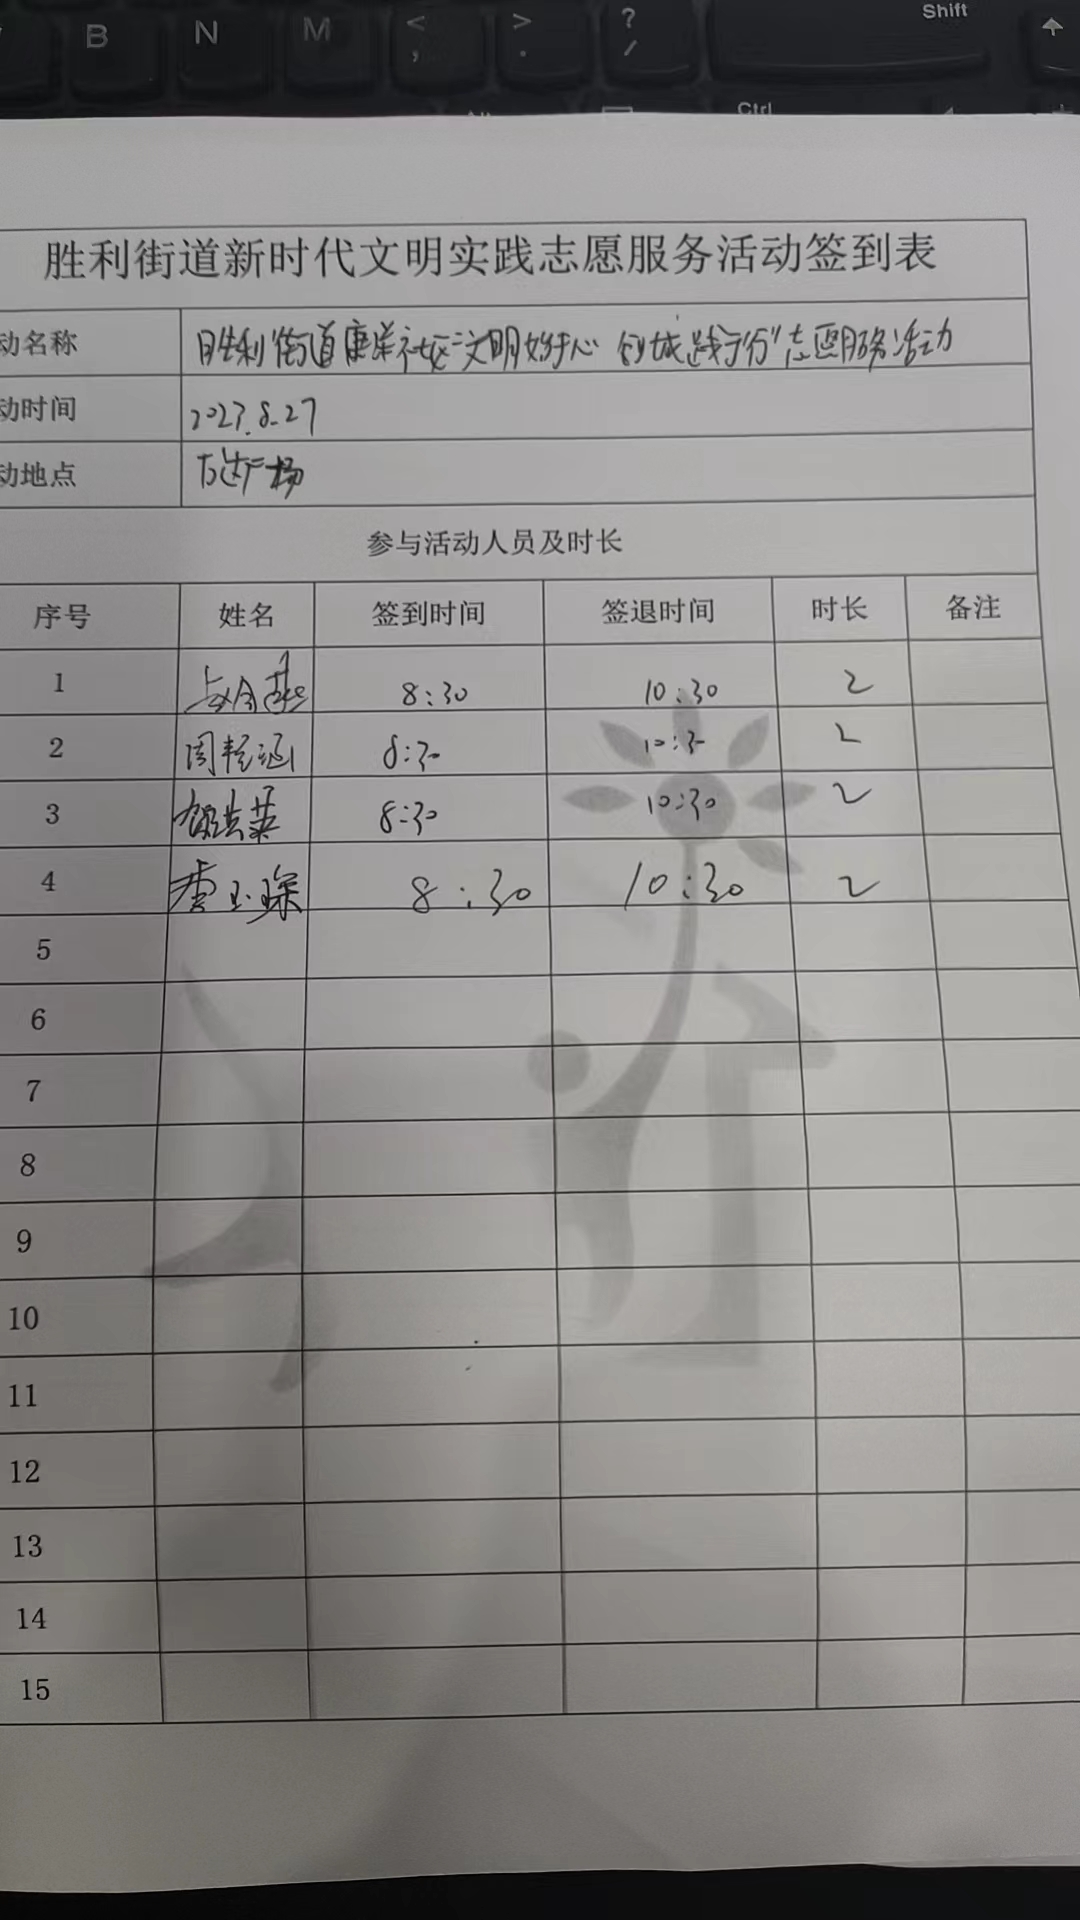 B N M < , > . ? / Shift
Ctrl
胜利街道新时代文明实践志愿服务活动签到表
动名称 胜利街道康洋社区"文明始于心 创城践于行"志愿服务活动
动时间 2023.8.27
动地点 万达广场
参与活动人员及时长
序号 姓名 签到时间 签退时间 时长 备注
1 8:30 10:30 2
2 周 涵 8:30 10:30 2
3 8:30 10:30 2
4 李玉琛 8:30 10:30 2
5
6
7
8
9
10
11
12
13
14
15